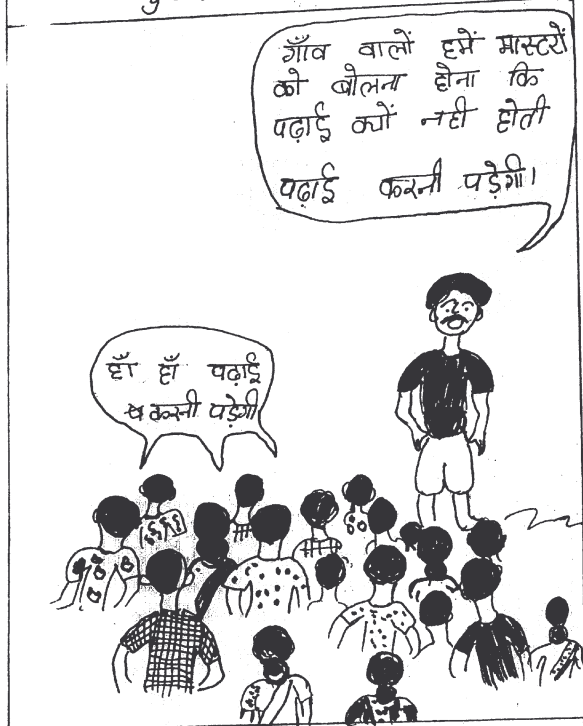 गाँव वालों हमें मास्टरों
को बोलना होना कि
पढ़ाई क्यों नही होती
पढ़ाई करनी पड़ेगी।
हाँ हाँ पढ़ाई
करनी पड़ेगी